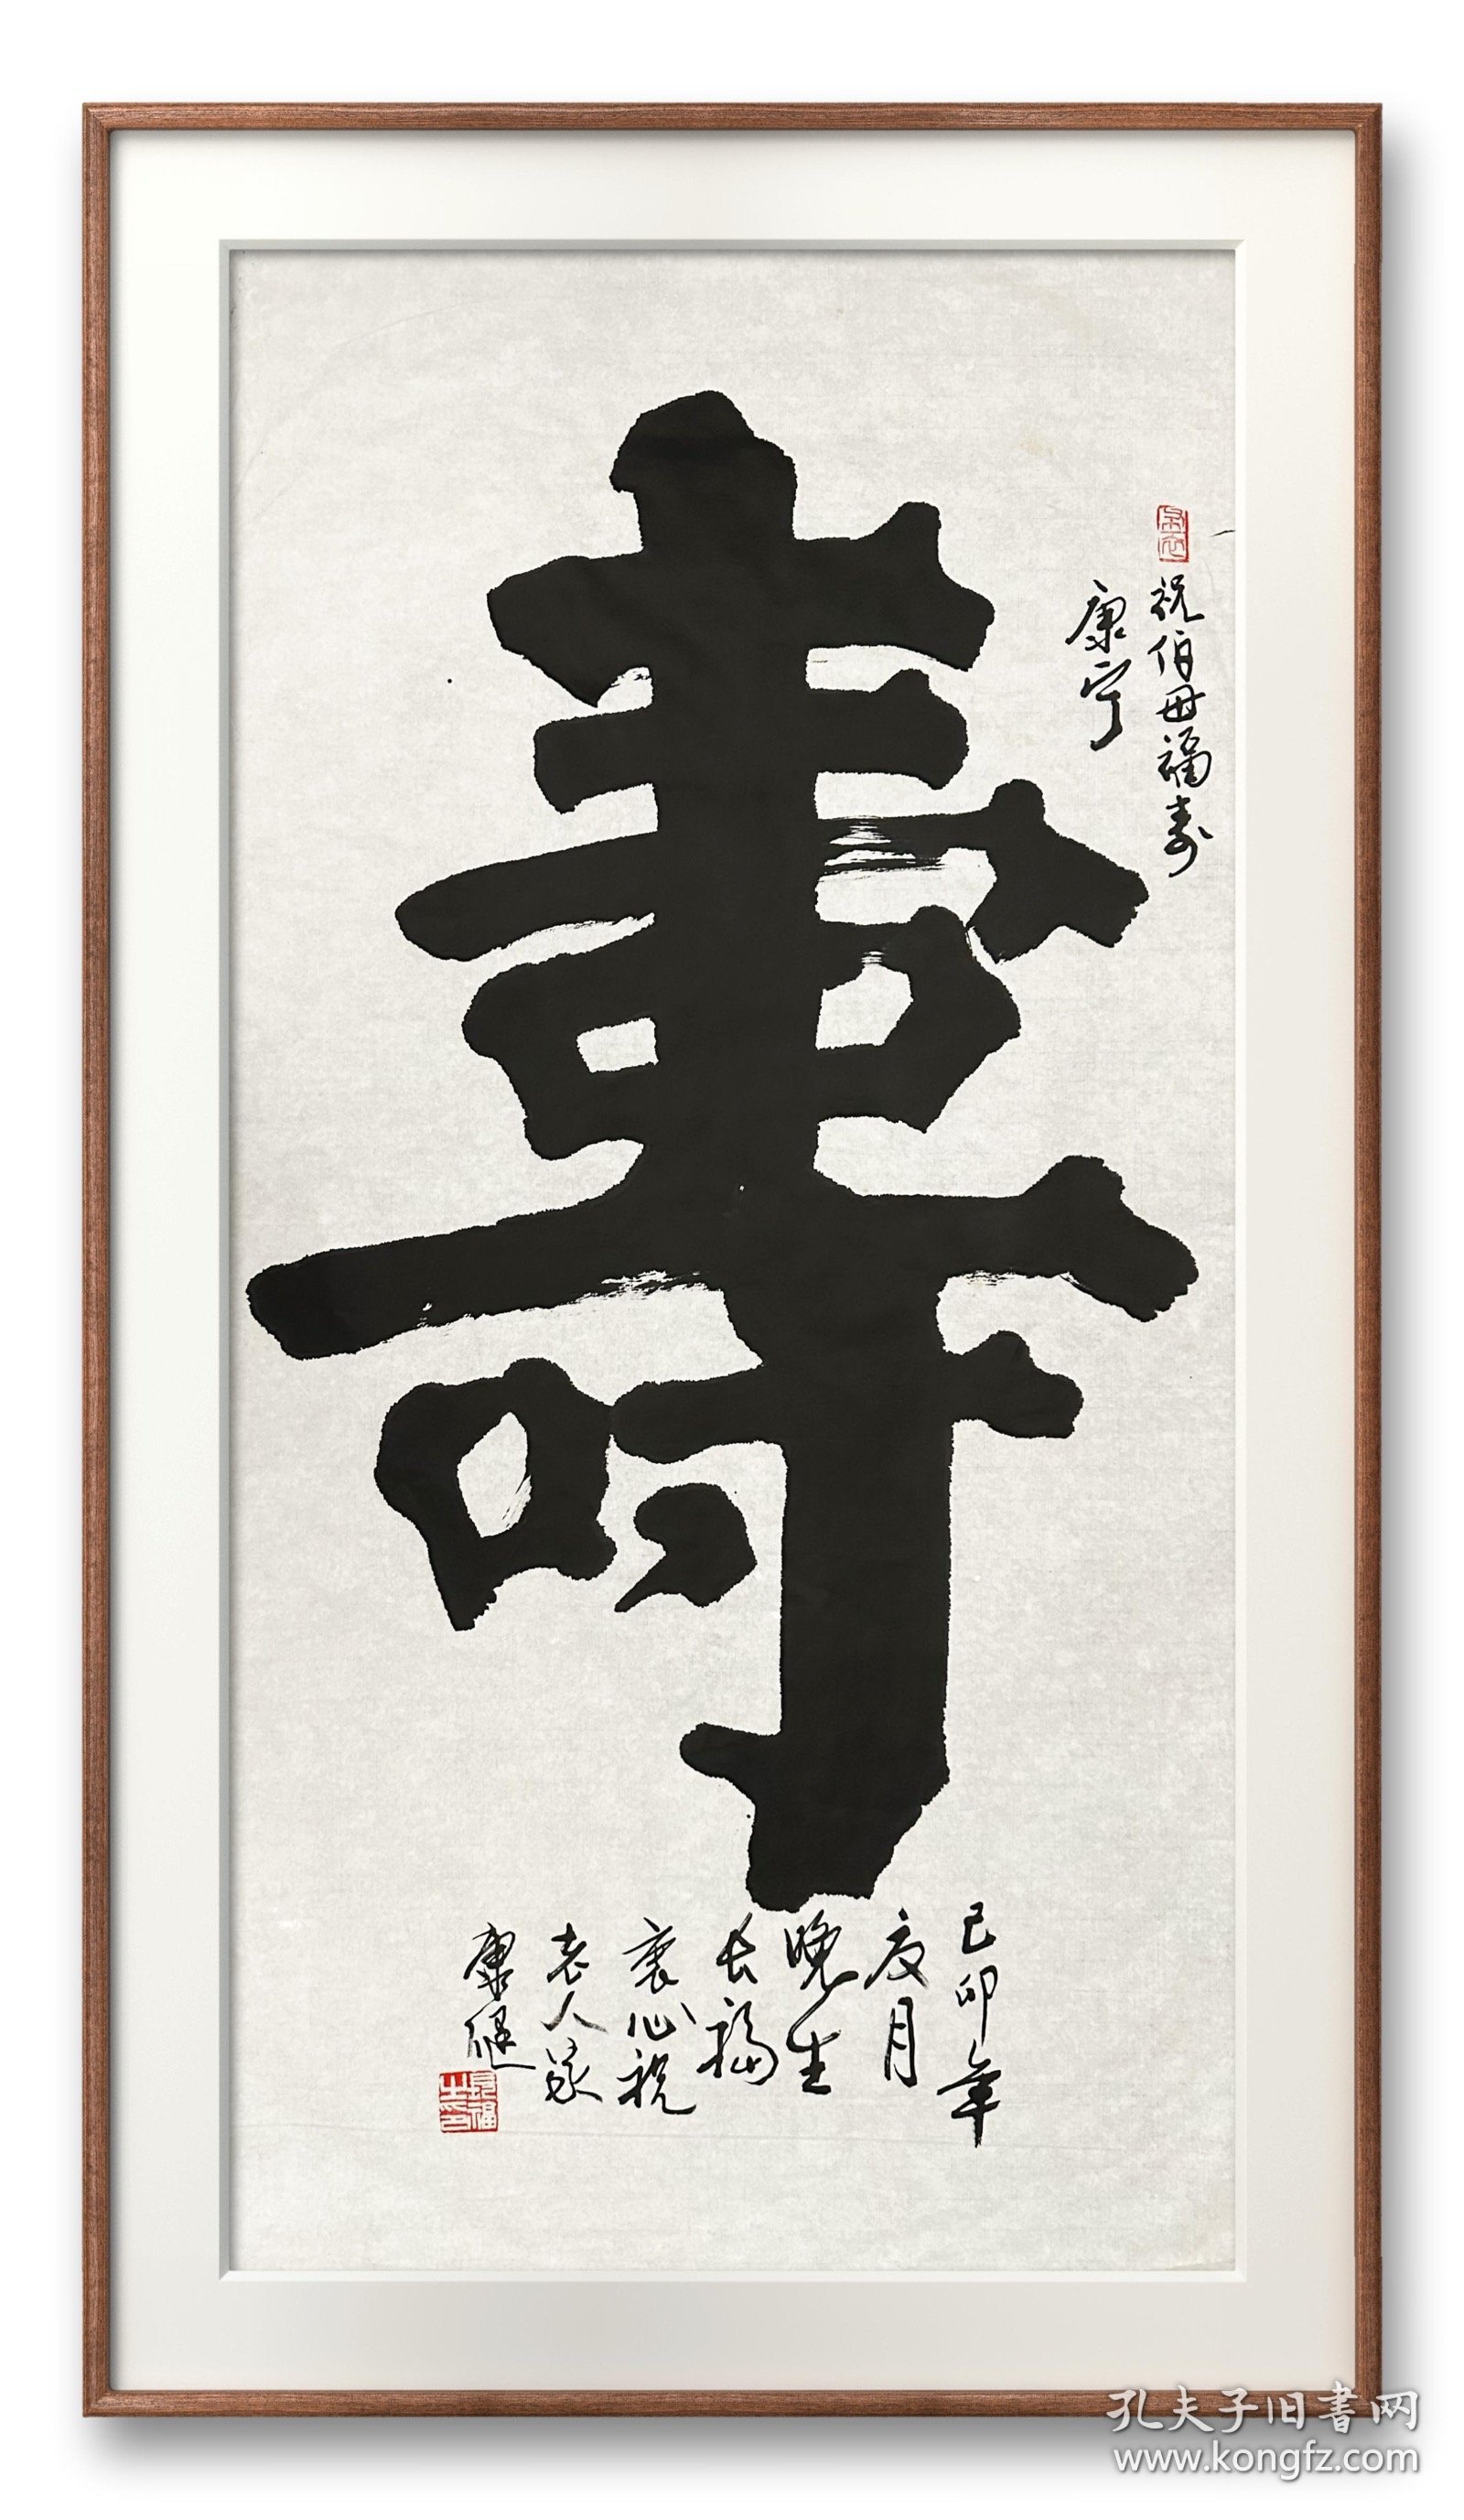 寿
祝伯母福寿
康宁
己卯年
夜月
晚生
长福
衷心祝
老人家
康健
孔夫子旧书网
www.kongfz.com